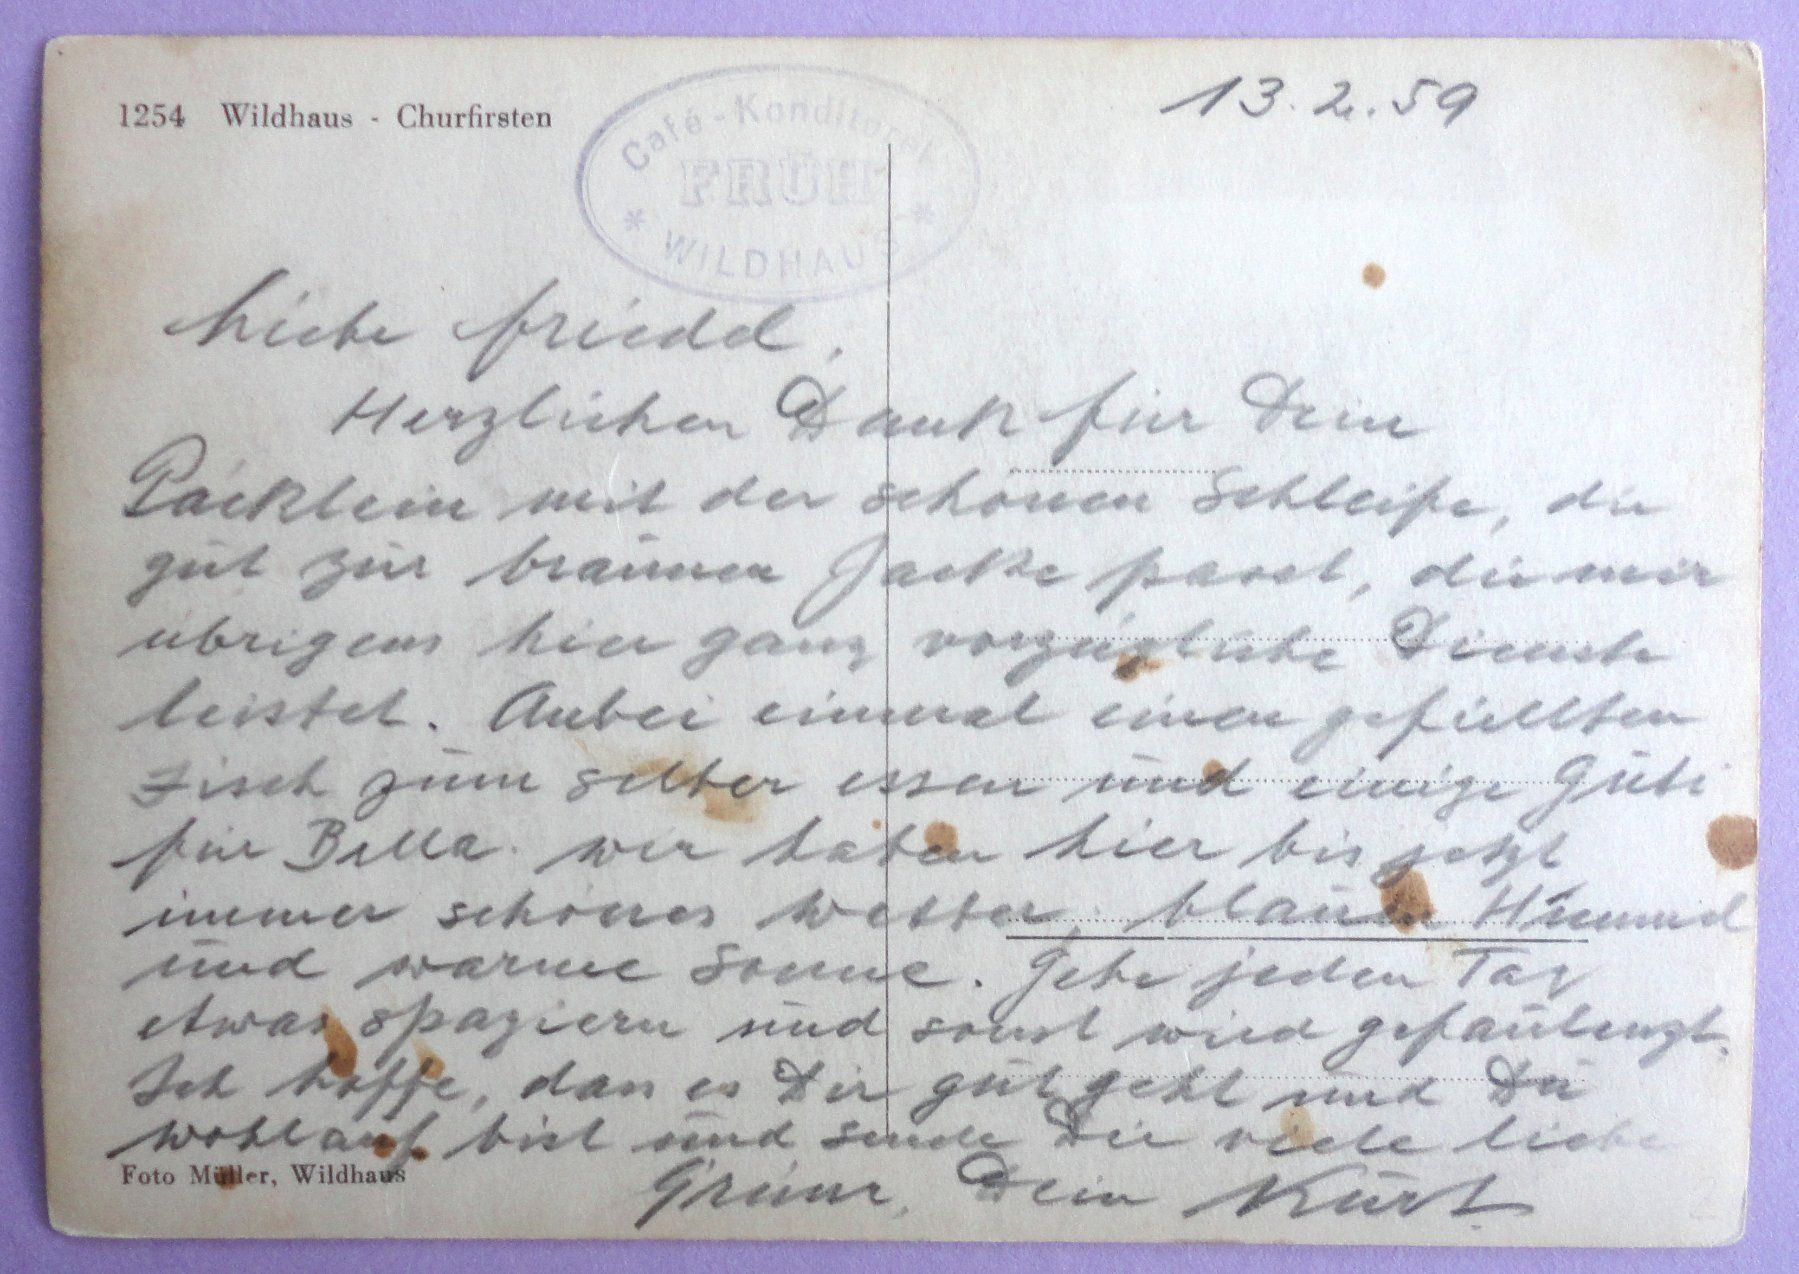 1254 Wildhaus - Churfirsten
Café - Konditorei
FRÜH
* WILDHAUS *
13.2.59
Liebe Friedel,
Herzlichen Dank für Dein
Päcklein mit der schönen Schleife, die
gut zur braunen Jacke passt, die mir
übrigens hier ganz vorzügliche Dienste
leistet. Anbei einmal einen gefüllten
Fisch zum selber essen und einige Guti
für Bella. Wir haben hier bis jetzt
immer schönes Wetter, blauen Himmel
und warme Sonne. Gehe jeden Tag
etwas spazieren und sonst wird gefaulenzt.
Ich hoffe, dass es Dir gut geht und Du
wohlauf bist und sende Dir viele liebe
Grüsse, Dein Kurt.
Foto Müller, Wildhaus